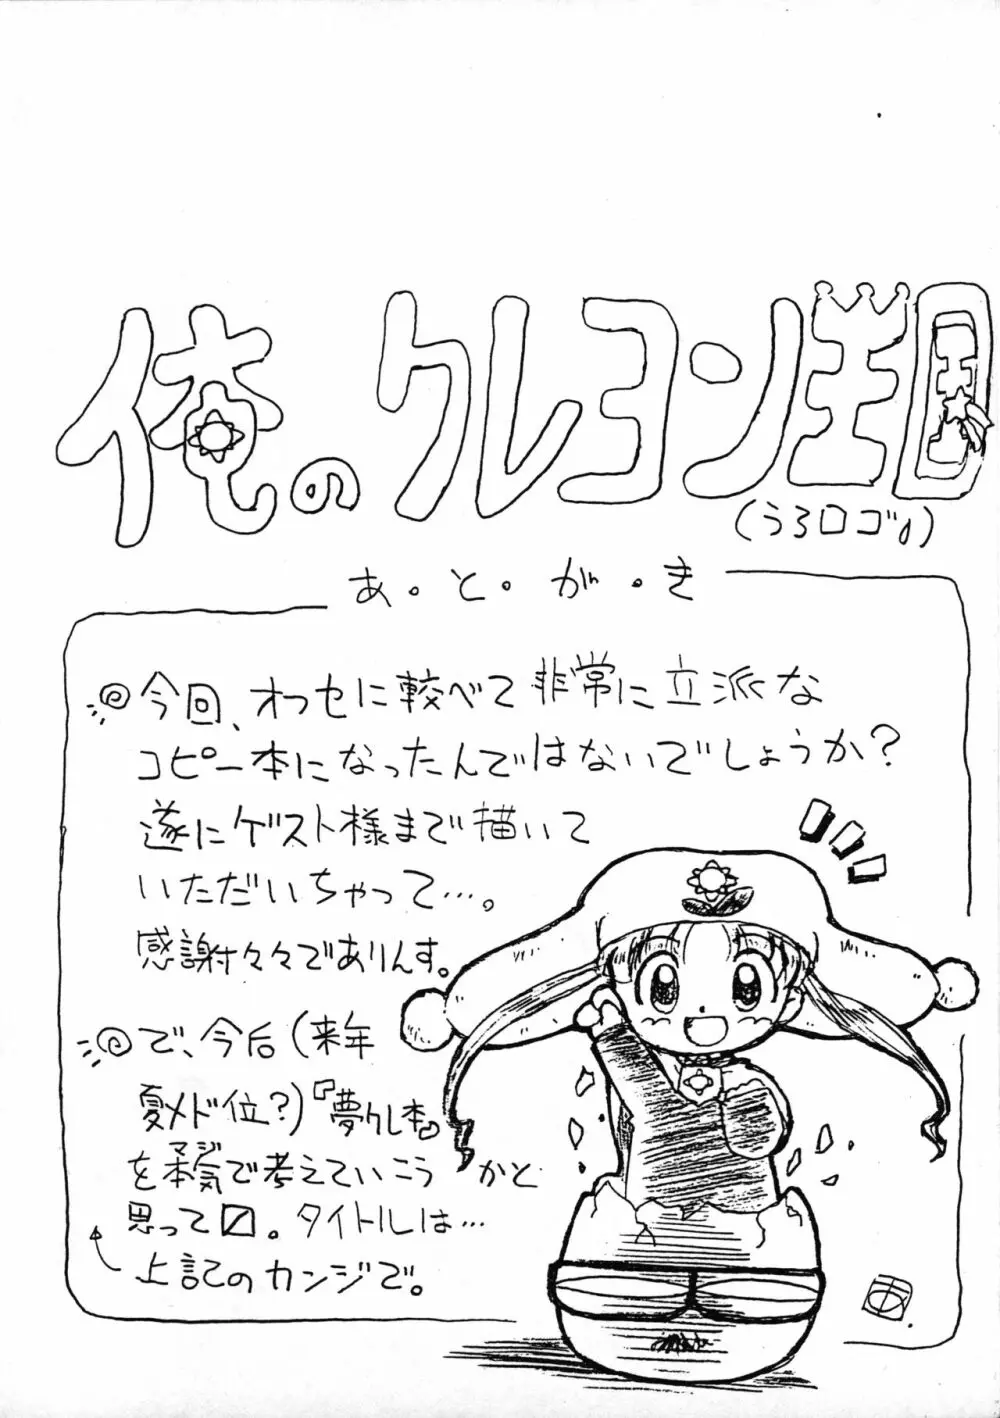 俺のクレヨン王国
(うろロゴ。)
あ・と・が・き
今回、オフセに較べて非常に立派な
コピー本になったんではないでしょうか?
遂にゲスト様まで描いて
いただいちゃって…。
感謝々々でありんす。
で、今后(来年
夏メド位?)『夢クレ本』
を本気で考えていこうかと
マジ
思って〼。タイトルは…
上記のカンジで。